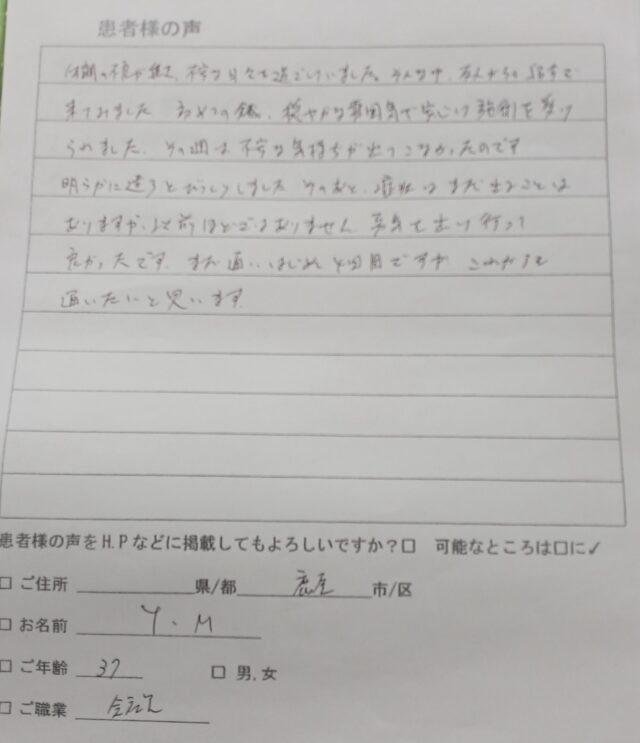 患者様の声
体調の不良が続き、不安な日々を過ごしていました。そんな中、友人からの紹介で
来てみました 初めての鍼、穏やかな雰囲気で安心し施術を受け
られました。その週は不安な気持ちが出てこなかったのです
明らかに違うとびっくりしました そのあと、症状はまだ出ることは
ありますが、以前ほどではありません 勇気を出し行って
良かったです。まだ通いはじめ4回目ですが これからも
通いたいと思います
患者様の声をH.Pなどに掲載してもよろしいですか?□ 可能なところは□に✓
□ ご住所 県/都 鹿屋 市/区
□ お名前 Y.M
□ ご年齢 37 □ 男,女
□ ご職業 会社員